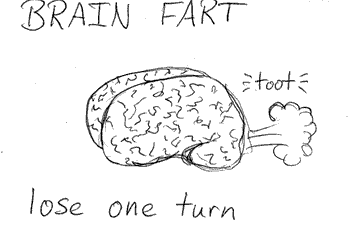 BRAIN FART
toot
lose one turn